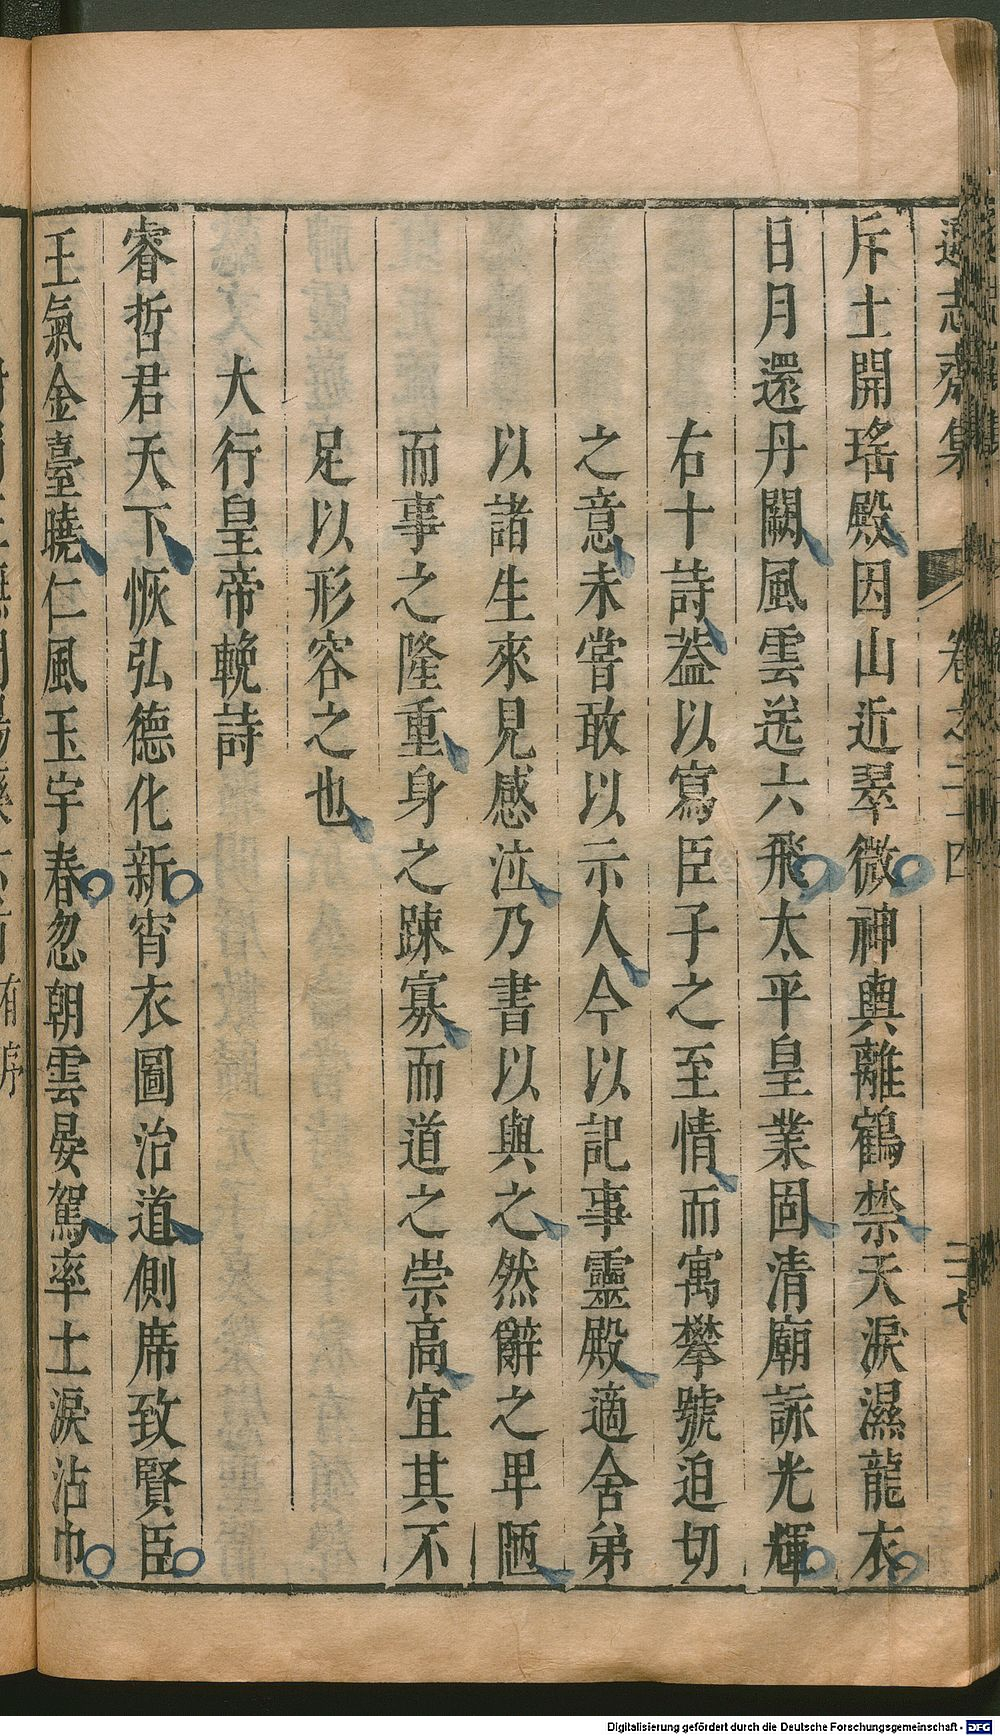 遜志齋集 卷之二十四 二十七
斥土開瑤殿因山近翠微神輿離鶴禁天淚濕龍衣
日月還丹闕風雲送六飛太平皇業固清廟詠光輝
右十詩葢以寫臣子之至情而寓攀號迫切
之意未嘗敢以示人今以記事靈殿適舍弟
以諸生來見感泣乃書以與之然辭之卑陋
而事之隆重身之踈寡而道之崇高宜其不
足以形容之也
大行皇帝輓詩
睿哲君天下恢弘德化新宵衣圖治道側席致賢臣
王氣金臺曉仁風玉宇春忽朝雲晏駕率土淚沾巾
有序
Digitalisierung gefördert durch die Deutsche Forschungsgemeinschaft - DFG